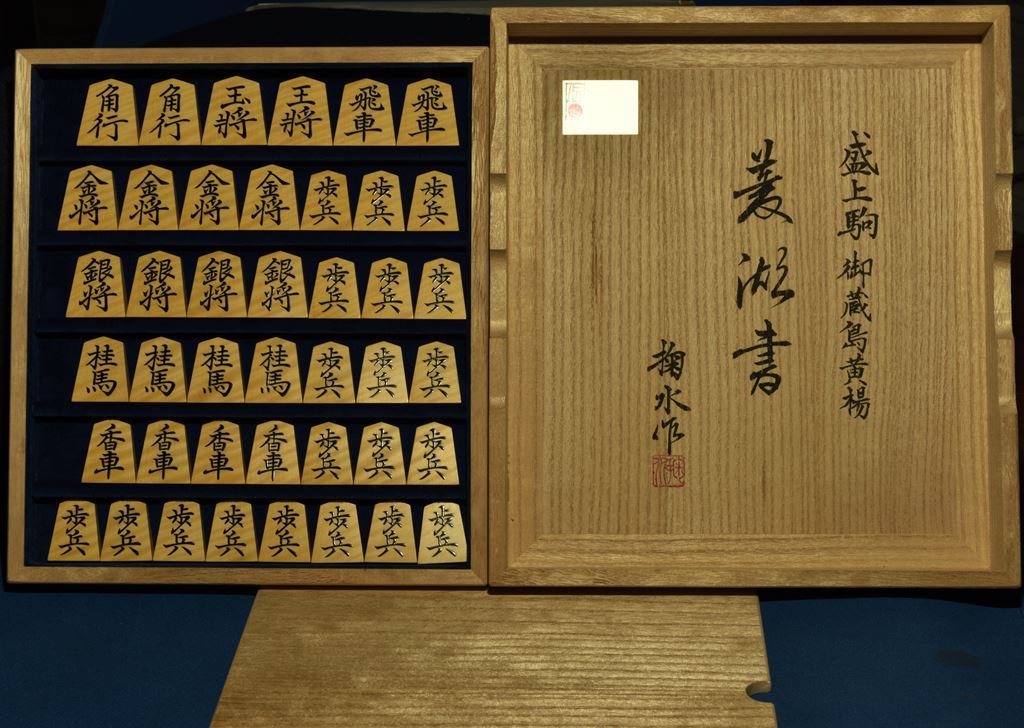 角行 角行 玉将 王将 飛車 飛車
金将 金将 金将 金将 歩兵 歩兵 歩兵
銀将 銀将 銀将 銀将 歩兵 歩兵 歩兵
桂馬 桂馬 桂馬 桂馬 歩兵 歩兵 歩兵
香車 香車 香車 香車 歩兵 歩兵 歩兵
歩兵 歩兵 歩兵 歩兵 歩兵 歩兵 歩兵 歩兵
盛上駒 御蔵島黄楊
菱湖書
掬水作